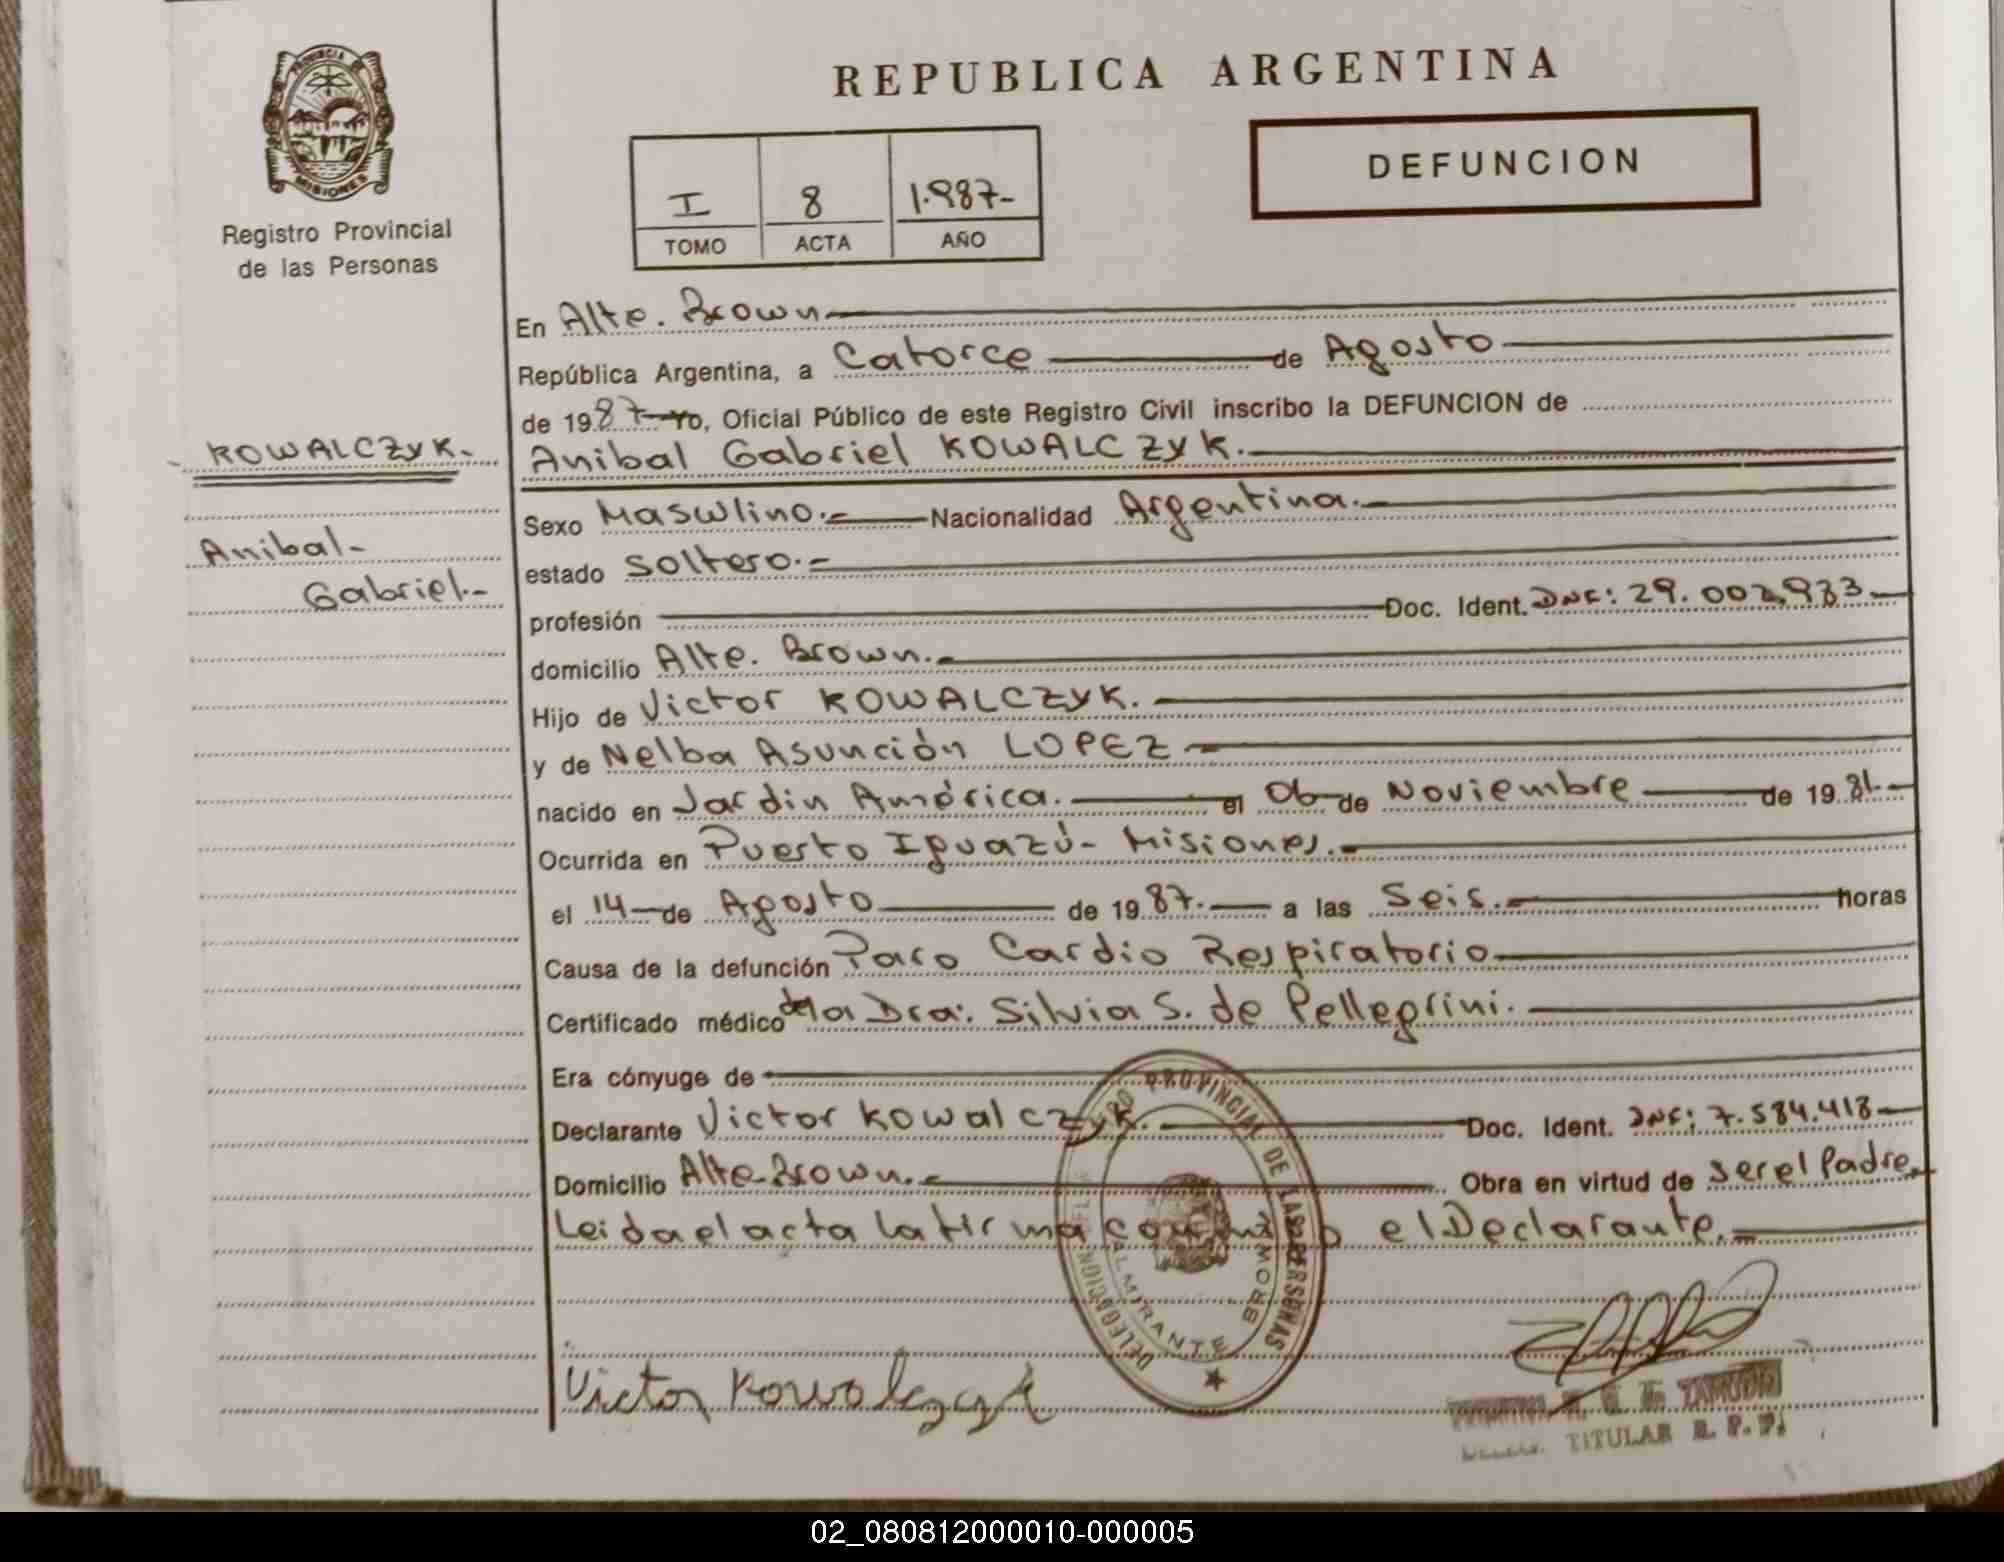 PROVINCIA DE
MISIONES
Registro Provincial
de las Personas
REPUBLICA ARGENTINA
DEFUNCION
I 8 1.987-
TOMO ACTA AÑO
En Alte. Brown
República Argentina, a Catorce de Agosto
de 1987 Yo, Oficial Público de este Registro Civil inscribo la DEFUNCION de
KOWALCZYK.
Anibal Gabriel KOWALCZYK.
Sexo Masculino.- Nacionalidad Argentina.
Anibal-
Gabriel.-
estado Soltero.-
profesión Doc. Ident. DNI: 29.002.933
domicilio Alte. Brown.
Hijo de Victor KOWALCZYK.
y de Nelba Asunción LOPEZ
nacido en Jardin América. el 06 de Noviembre de 1981
Ocurrida en Puerto Iguazú- Misiones.
el 14 de Agosto de 1987. a las Seis. horas
Causa de la defunción Paro Cardio Respiratorio
Certificado médico de la Dra: Silvia S. de Pellegrini.
Era cónyuge de
Declarante Victor Kowalczyk. Doc. Ident. DNI: 7.584.418
Domicilio Alte. Brown. Obra en virtud de ser el Padre.
Leida el acta la firma conmigo el Declarante.
PROVINCIAL DE LAS PERSONAS
DELEGACION
ALMIRANTE BROWN
Victor Kowalczyk
TITULAR R. P. P.
02_080812000010-000005